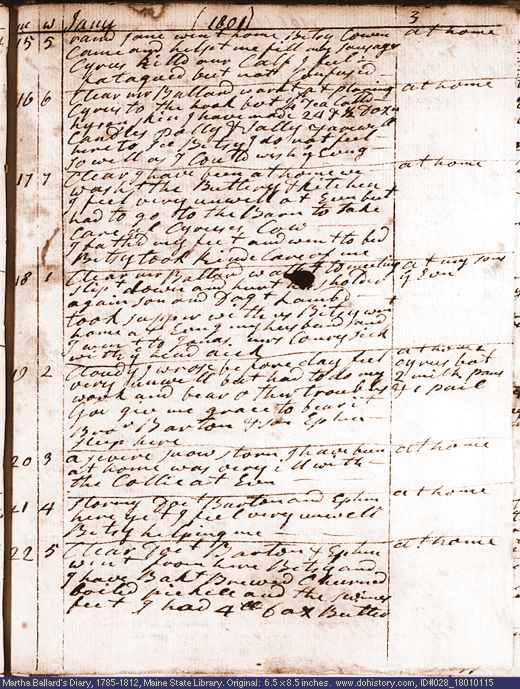 m w Jany (1801) 3
15 5 raind Jane went home Betsy Cowen at home
Came and helpt me fill my Sausages
Cyrus killd our Calf I feel
fhatagued but not Confined
16 6 Clear mr Ballard went at plaping at home
Cyrus to the hook for
Skin I have made 24 & ½ Dozn
Candles Polly & Sally
here to See Betsy I do not feel
So well as I Could wish at Evng
17 7 Clear I have been at home we at home
washt the Buttery & kitchen
I feel very unwell at Evn but
had to go to the Barn to take
Care of Cyruses Cow
I bathd my feet and went to bed
Betsy took kind Care of me
18 1 Clear mr Ballard went to meeting at my sons
Slipt down and hurt his Sholder & Evn
again Son and Dagt Lambd
took Supper with us Betsy went
home at Evng my husband and
I went to Jonas. mrs Sick
with head ack
19 2 Cloudy I arose before day feel at home
very unwell but had to do my Cyrus bot
work and bear other troubles 2 milk pans
God give me grace to bear it & 1 pail
Broe Barton & Son Ephm
Sleep here
20 3 a Severe Snow Storm I have been at home
at home was very ill with
the Collic at Evn
21 4 Stormy Dagt Barton and Ephm at home
here yet I feel very unwell
Betsy helping me
22 5 Clear Dagt Barton & Ephm at home
went from here Betsy and
I have Bakt Brewed Churned
boild pickle and the Swines
feet I had 4 lb 6 oz Butter
Martha Ballard's Diary, 1785-1812, Maine State Library. Original: 6.5 x 8.5 inches. www.dohistory.com, ID#028_18010115